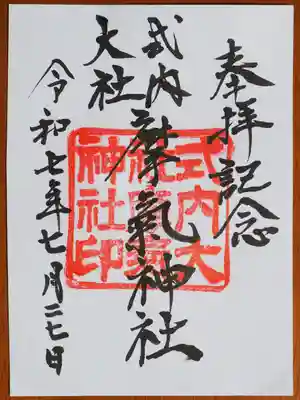 奉拝記念
式内
大社
摩氣神社
令和七年七月二七日
式内大
神社印